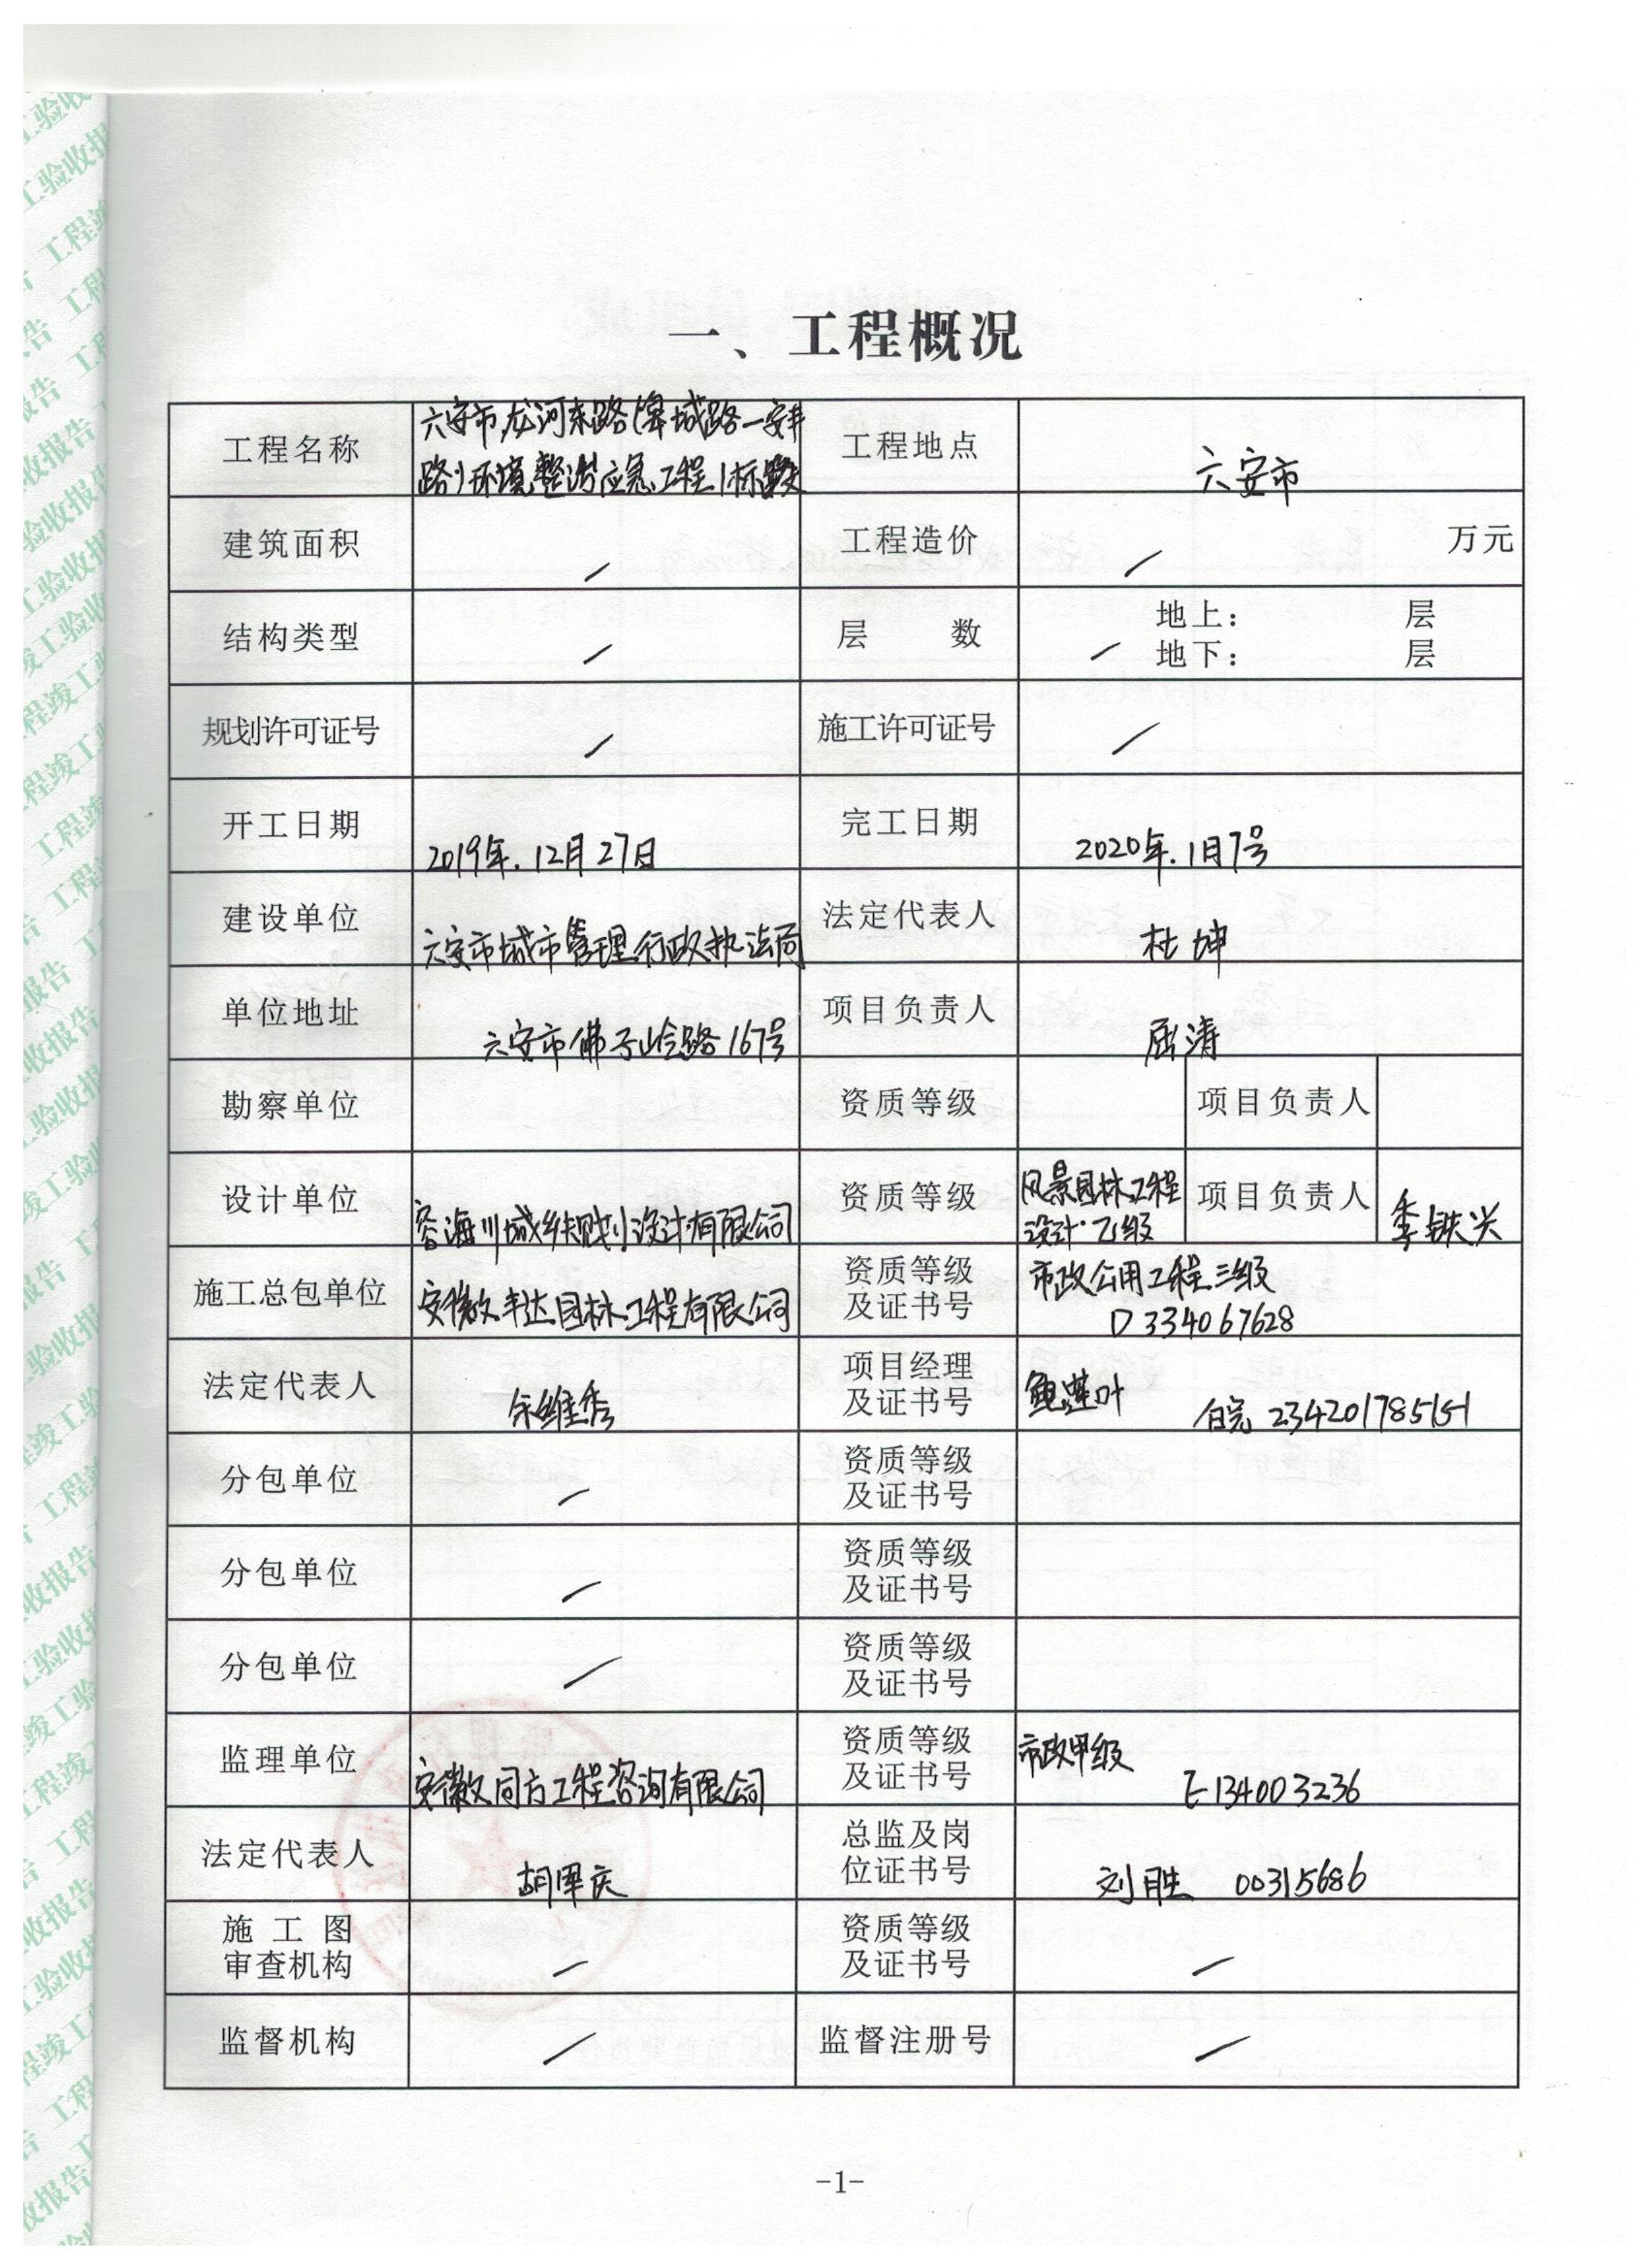 一、工程概况
工程名称 六安市龙河东路(皋城路一安丰
路)环境整治应急工程1标段 工程地点 六安市
建筑面积 / 工程造价 / 万元
结构类型 / 层 数 / 地上: 层
地下: 层
规划许可证号 / 施工许可证号 /
开工日期 2019年.12月27日 完工日期 2020年.1月7号
建设单位 六安市城市管理行政执法局 法定代表人 杜坤
单位地址 六安市佛子岭路167号 项目负责人 屈涛
勘察单位 资质等级 项目负责人
设计单位 海川城乡规划设计有限公司 资质等级 风景园林工程
设计乙级 项目负责人 季铁兴
施工总包单位 安徽丰达园林工程有限公司 资质等级
及证书号 市政公用工程三级
D334067628
法定代表人 余维秀 项目经理
及证书号 鲍莲叶 皖234201785151
分包单位 / 资质等级
及证书号
分包单位 / 资质等级
及证书号
分包单位 / 资质等级
及证书号
监理单位 安徽同方工程咨询有限公司 资质等级
及证书号 市政甲级
E134003236
法定代表人 胡军庆 总监及岗
位证书号 刘胜 00315686
施 工 图
审查机构 / 资质等级
及证书号 /
监督机构 / 监督注册号 /
-1-